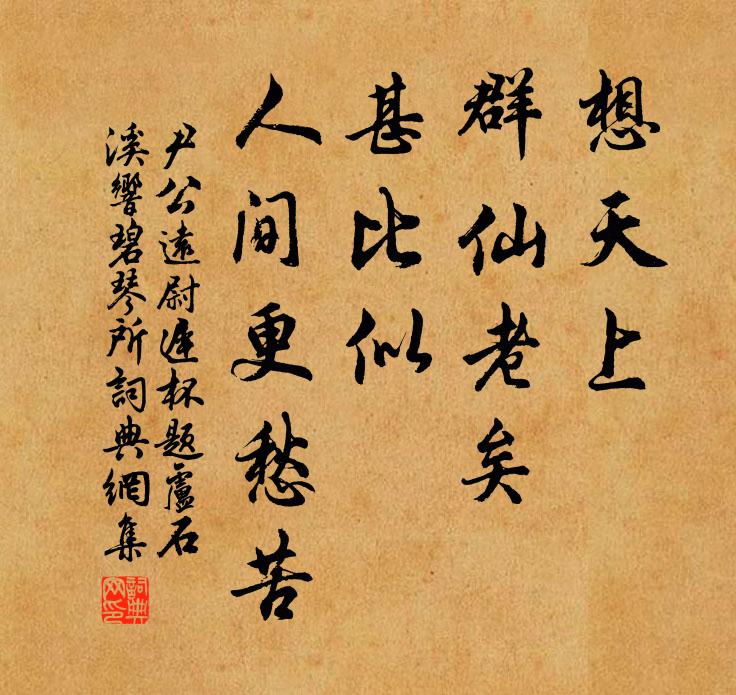 想天上
群仙老矣
甚比似
人间更愁苦
尹公遠尉遲杯題盧石
溪響碧琴所詞典網集
詞典網印